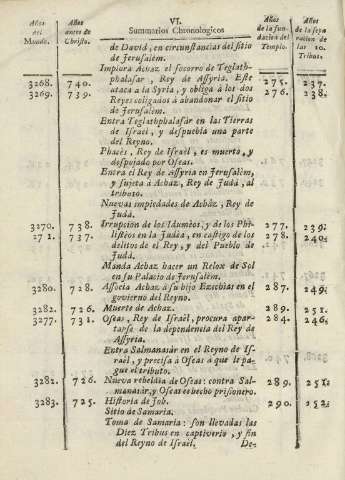 VI.
Años del Mundo.
Años antes de Christo.
Summarios Chronologicos
Años de la fundacion del Templo.
Años de la separacion de las 10. Tribus.
de David, en circunstancias del sitio
de Jerusalèm.
Implora Achaz el socorro de Teglath-
3268. 740. phalasar, Rey de Assyria. Este 275. 237.
3269. 739. ataca a la Syria, y obliga à los dos 276. 238.
Reyes coligados à abandonar el sitio
de Jerusalèm.
Entra Teglathphalasàr en las Tierras
de Israèl, y despuebla una parte
del Reyno.
Phacès, Rey de Israèl, es muerto, y
despojado por Oseas.
Entra el Rey de Assyria en Jerusalèm,
y sujeta à Achàz, Rey de Judà, al
tributo.
Nuevas impiedades de Achàz, Rey de
Judà.
3270. 738. Irrupcion de los Idumèos, y de los Phi- 277. 239.
271. 737. listèos en la Judèa, en castigo de los 278. 240.
delitos de el Rey, y del Pueblo de
Judà.
Manda Achaz hacer un Relox de Sol
en su Palacio de Jerusalèm.
3280. 728. Associa Achàz à su hijo Ezechias en el 287. 249.
govierno del Reyno.
3282. 726. Muerte de Achaz. 289. 251.
3277. 731. Oseas, Rey de Israèl, procura apar- 284. 246.
tarse de la dependencia del Rey de
Assyria.
Entra Salmanasàr en el Reyno de Is-
raèl, y precisa à Oseas à que le pa-
gue el tributo.
3282. 726. Nueva rebeldia de Oseas: contra Sal- 289. 251.
manasàr, y Oseas es hecho prisionero.
3283. 725. Historia de Job. 290. 252.
Sitio de Samaria.
Toma de Samaria: son llevadas las
Diez Tribus en captiverio, y fin
del Reyno de Israèl.
De-